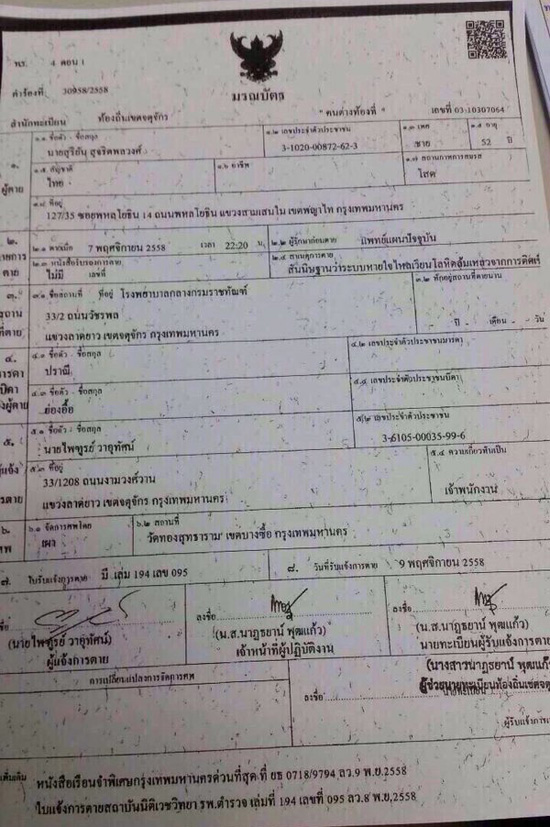 ทร. 4 ตอน 1
คำร้องที่ 30958/2558
มรณบัตร
สำนักทะเบียน ท้องถิ่นเขตจตุจักร " คนต่างท้องที่ " เลขที่ 03-10307064
๑.๑ ชื่อตัว - ชื่อสกุล ๑.๒ เลขประจำตัวประชาชน ๑.๓ เพศ ๑.๔ อายุ
นายสุริยัน สุจริตพลวงศ์ 3-1020-00872-62-3 ชาย 52 ปี
๑.
ผู้ตาย
๑.๕ สัญชาติ ๑.๖ อาชีพ ๑.๗ สถานภาพการสมรส
ไทย โสด
๑.๘ ที่อยู่
127/35 ซอยพหลโยธิน 14 ถนนพหลโยธิน แขวงสามเสนใน เขตพญาไท กรุงเทพมหานคร
๒.
ตาย
๒.๑ ตายเมื่อ 7 พฤศจิกายน 2558 เวลา 22:20 น. ๒.๒ ผู้รักษาก่อนตาย แพทย์แผนปัจจุบัน
๒.๓ หนังสือรับรองการตาย ๒.๔ สาเหตุการตาย
ไม่มี เลขที่ สันนิษฐานว่าระบบหายใจไหลเวียนโลหิตล้มเหลวจากการติดเ
๓.
ที่ตาย
๓.๑ ชื่อสถานที่ ที่อยู่ โรงพยาบาลกลางกรมราชทัณฑ์ ๓.๒
33/2 ถนนวัชรพล
แขวงลาดยาว เขตจตุจักร กรุงเทพมหานคร - ปี - เดือน - วัน
๔.
๔.๑ ชื่อตัว - ชื่อสกุล ๔.๒ เลขประจำตัวประชาชนมารดา
ปราณี
๔.๓ ชื่อตัว - ชื่อสกุล ๔.๔ เลขประจำตัวประชาชนบิดา
ย่องอื้อ
๕.
๕.๑ ชื่อตัว - ชื่อสกุล ๕.๒ เลขประจำตัวประชาชน
นายไพฑูรย์ วายุทัศน์ 3-6105-00035-99-6
๕.๓ ที่อยู่ ๕.๔ ความเกี่ยวพันเป็น
33/1208 ถนนงามวงศ์วาน
แขวงลาดยาว เขตจตุจักร กรุงเทพมหานคร เจ้าพนักงาน
๖.
๖.๑ จัดการศพโดย ๖.๒ สถานที่
เผา วัดทองสุทธาราม เขตบางซื่อ กรุงเทพมหานคร
๗. ใบรับแจ้งการตาย มี เล่ม 194 เลข 095 ๘. วันที่รับแจ้งการตาย 9 พฤศจิกายน 2558
ลงชื่อ ลงชื่อ
(นายไพฑูรย์ วายุทัศน์) (น.ส.นาฏธยาน์ พุฒแก้ว) (น.ส.นาฏธยาน์ พุฒแก้ว)
ผู้แจ้งการตาย เจ้าหน้าที่ผู้ปฏิบัติงาน นายทะเบียนผู้รับแจ้งการตา
(นางสาวนาฏธยาน์ พุฒแก้
การเปลี่ยนแปลงการจัดการศพ ผู้ช่วยนายทะเบียนท้องถิ่นเขตจตุ
ลงชื่อ
ผู้รับแจ้งการเป
หนังสือเรือนจำพิเศษกรุงเทพมหานครด่วนที่สุด ที่ ยธ 0718/9794 ลว.9 พ.ย.2558
ใบแจ้งการตายสถาบันนิติเวชวิทยา รพ.ตำรวจ เล่มที่ 194 เลขที่ 095 ลว.8 พ.ย.2558